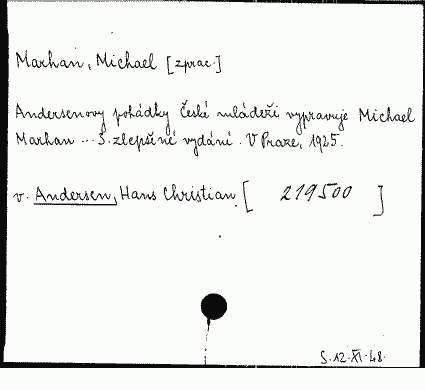 Marhan, Michael [zprac.]
Andersenovy pohádky české mládeži vypravuje Michael
Marhan ... 3. zlepšené vydání. V Praze, 1925.
v. Andersen, Hans Christian. [ 219500 ]
S. 12. XI. 48.